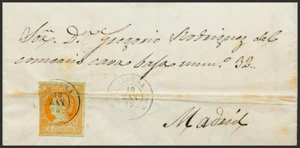 Sor. Dn. Gregorio Rodriguez del
comercio cava baja num.º 32.
Madrid
10
10